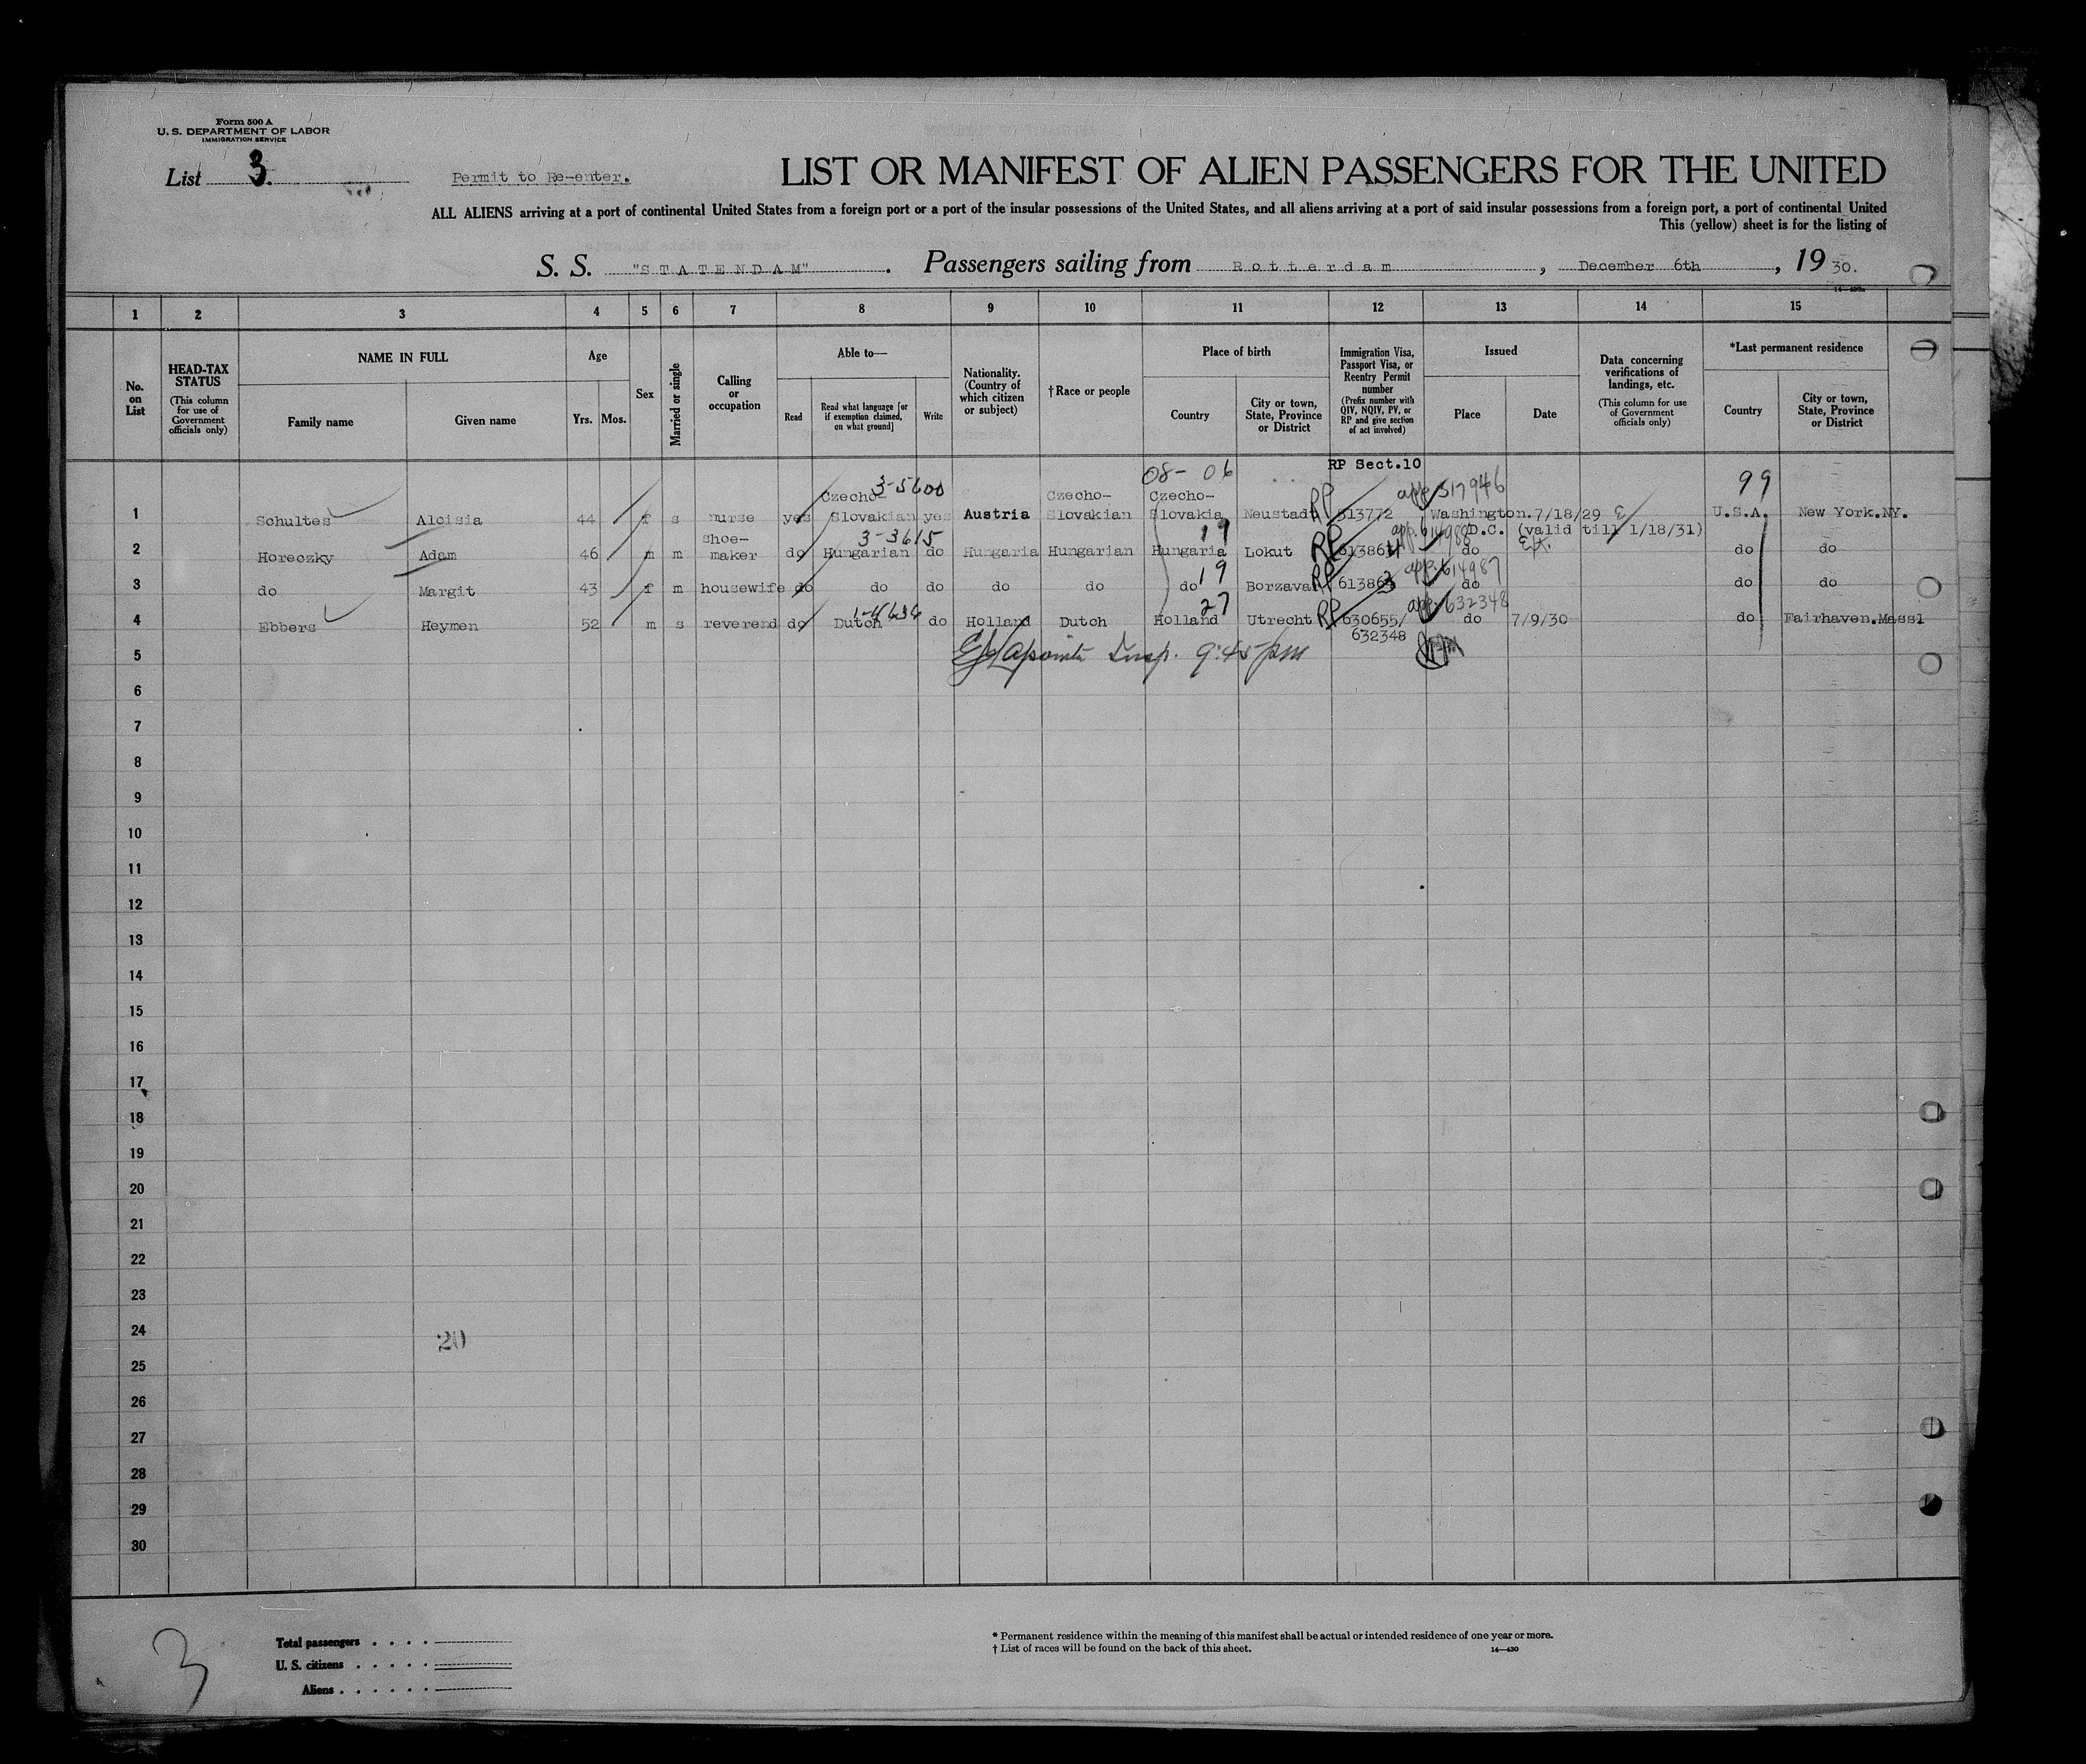 Form 500 A
U. S. DEPARTMENT OF LABOR
IMMIGRATION SERVICE
List 3. Permit to Re-enter. LIST OR MANIFEST OF ALIEN PASSENGERS FOR THE UNITED
ALL ALIENS arriving at a port of continental United States from a foreign port or a port of the insular possessions of the United States, and all aliens arriving at a port of said insular possessions from a foreign port, a port of continental United
This (yellow) sheet is for the listing of
S. S. "STATENDAM". Passengers sailing from Rotterdam, December 6th, 19 30.
1 2 3 4 5 6 7 8 9 10 11 12 13 14 15
No. on List
HEAD-TAX STATUS (This column for use of Government officials only)
NAME IN FULL
Family name Given name
Age
Yrs. Mos.
Sex
Married or single
Calling or occupation
Able to—
Read Read what language [or if exemption claimed, on what ground] Write
Nationality. (Country of which citizen or subject)
† Race or people
Place of birth
Country City or town, State, Province or District
Immigration Visa, Passport Visa, or Reentry Permit number (Prefix number with QIV, NQIV, PV, or RP and give section of act involved)
Issued
Place Date
Data concerning verifications of landings, etc. (This column for use of Government officials only)
*Last permanent residence
Country City or town, State, Province or District
08- 06 RP Sect.10
3-5600 app 517946 99
Czecho- Czecho- Czecho-
1 Schultes Aloisia 44 f s nurse yes Slovakian yes Austria Slovakian Slovakia Neustadt RP 513772 Washington. 7/18/29 U.S.A. New York.NY.
shoe- 3-3615 19 app. 614988 D.C. (valid till 1/18/31)
2 Horeczky Adam 46 m m maker do Hungarian do Hungaria Hungarian Hungaria Lokut RP 613864 do Ex. do do
19 app. 614987
3 do Margit 43 f m housewife do do do do do do Borzavar RP 613863 do do do
1-4636 27 app. 632348
4 Ebbers Heymen 52 m s reverend do Dutch do Holland Dutch Holland Utrecht RP 630655/ do 7/9/30 do Fairhaven.Massl
632348
5 Lapointe Insp. 9:45 pm
6
7
8
9
10
11
12
13
14
15
16
17
18
19
20
21
22
23
24 20
25
26
27
28
29
30
3
Total passengers
U. S. citizens
Aliens
* Permanent residence within the meaning of this manifest shall be actual or intended residence of one year or more.
† List of races will be found on the back of this sheet. 14—430